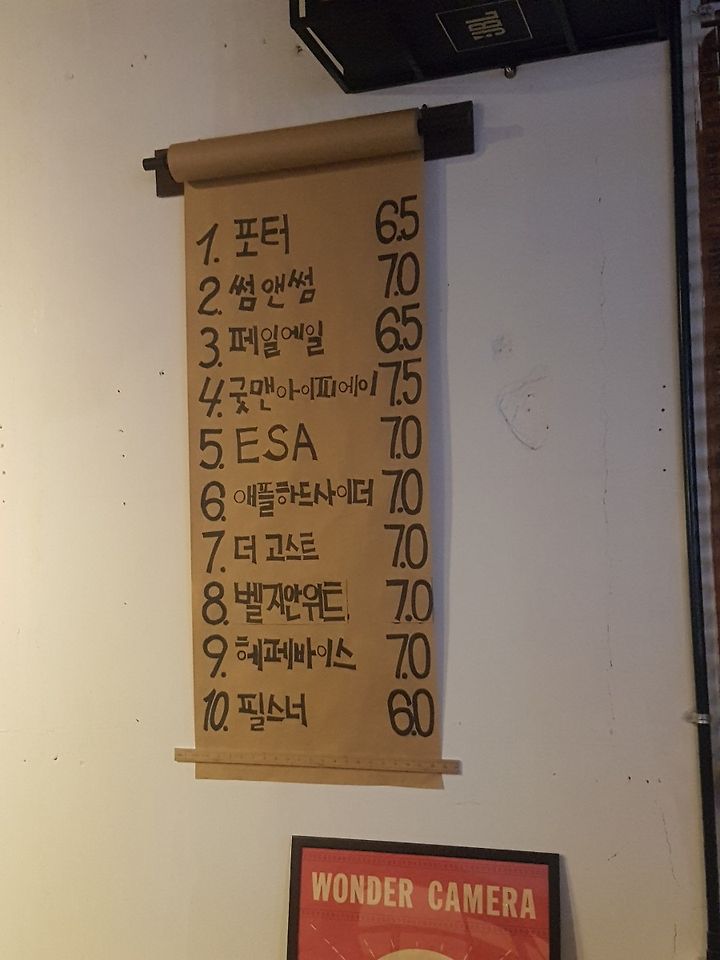 JBL
1. 포터 6.5
2. 썸앤썸 7.0
3. 페일에일 6.5
4. 굿맨아이피에이 7.5
5. ESA 7.0
6. 애플하드사이더 7.0
7. 더 고스트 7.0
8. 벨지안위트 7.0
9. 헤페바이스 7.0
10. 필스너 6.0
WONDER CAMERA